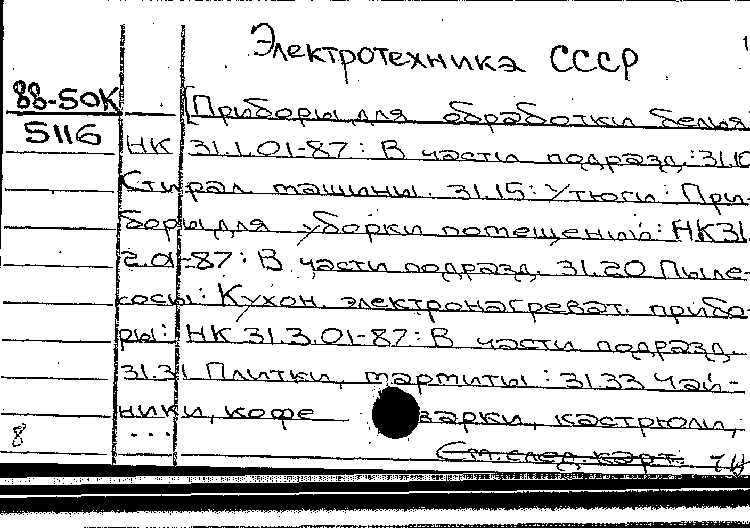 Электротехника СССР
88-50К
[Приборы для обработки белья
5116
НК 31.1.01-87: В части подразд.: 31.10
Стирал. машины. 31.15: Утюги: При-
боры для уборки помещений: НК 31.
2.01-87: В части подразд. 31.20 Пыле-
сосы: Кухон. электронагреват. прибо-
ры: НК 31.3.01-87: В части подразд.
31.31 Плитки, мармиты: 31.33 Чай-
ники, кофе варки, кастрюли,
8 ...
См. след. карт.